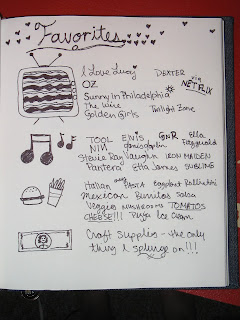 Favorites
I Love Lucy DEXTER via NETFLIX
OZ
Sunny In Philadelphia
The Wire Twilight Zone
Golden Girls
TOOL ELVIS GNR Ella Fitzgerald
NIN Janis Joplin
Stevie Ray Vaughn IRON MAIDEN
Pantera Etta James SUBLIME
Italian any PASTA Eggplant Rollantini
Mexican Burritos Salsa
Veggies MUSHROOMS TOMATOS
CHEESE!!! Pizza Ice Cream
Craft Supplies - the only
thing I splurge on!!!